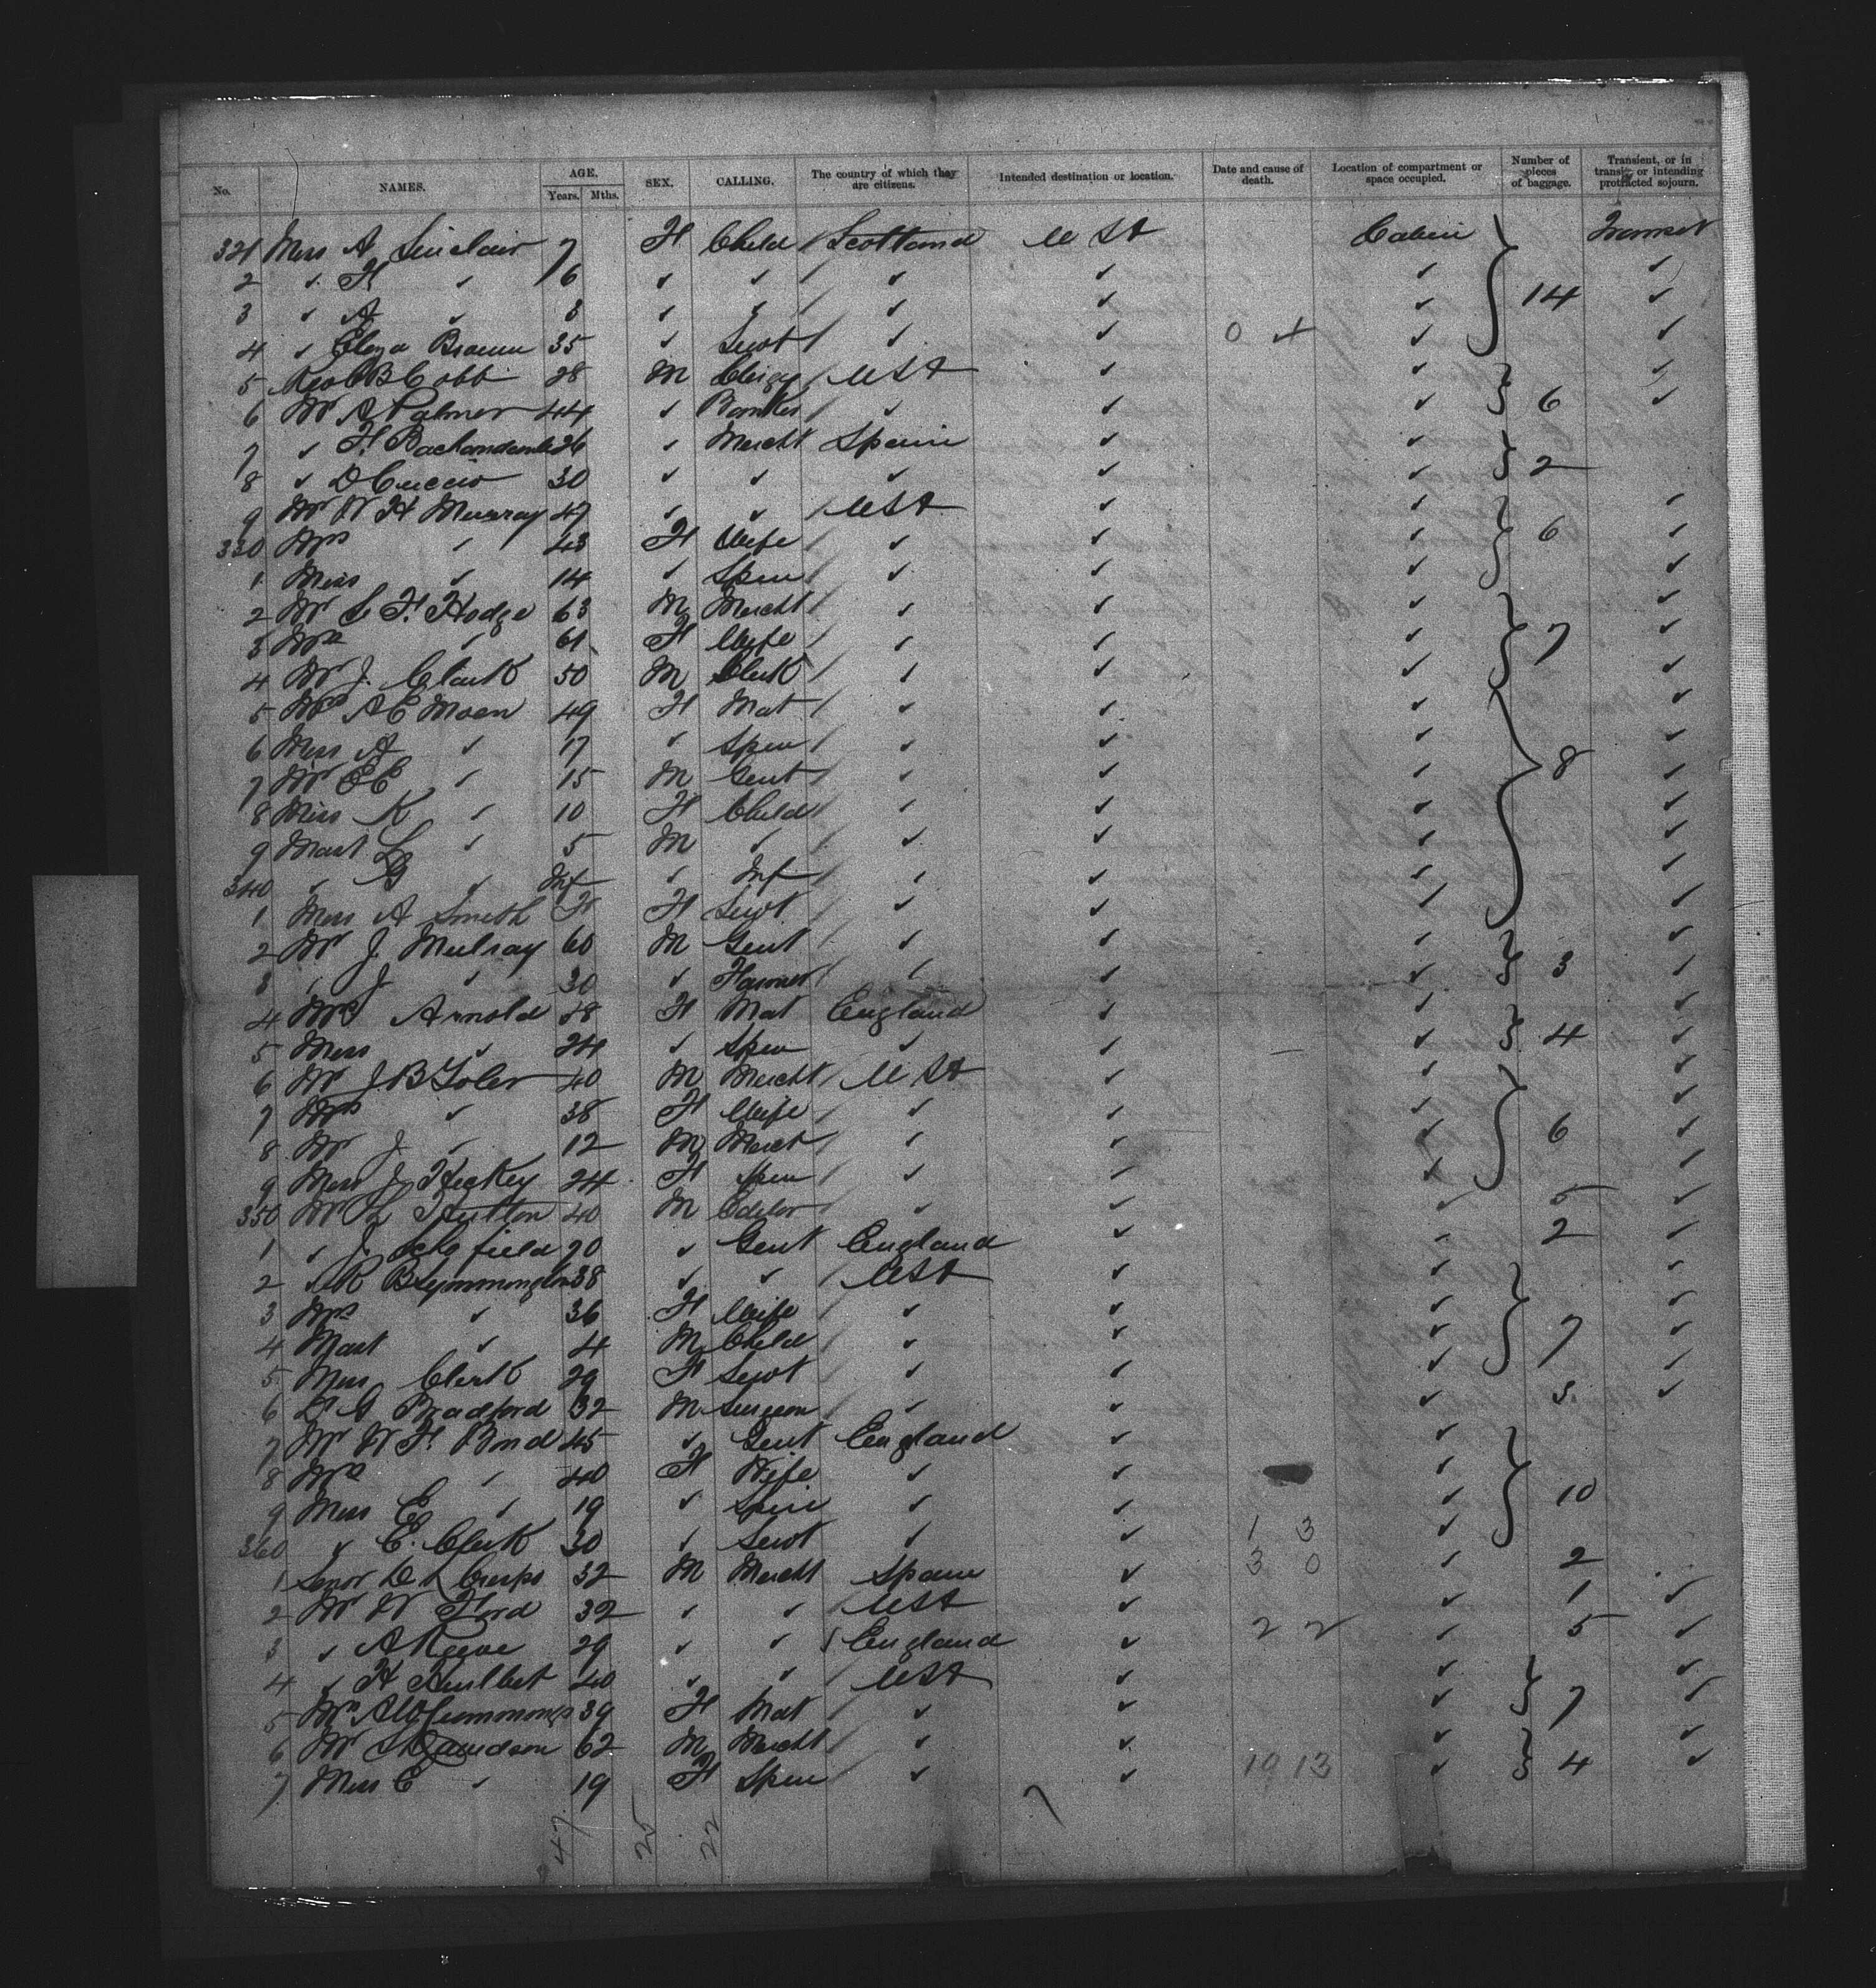 No. NAMES. AGE. Years. Mths. SEX. CALLING. The country of which they are citizens. Intended destination or location. Date and cause of death. Location of compartment or space occupied. Number of pieces of baggage. Transient, or in transit, or intending protracted sojourn.
321 Miss A Sinclair 7 F Child Scotland U St Cabin Transit
2 ✓ F ✓ 6 ✓ ✓ ✓ ✓ ✓ 14 ✓
3 ✓ A ✓ 3 ✓ ✓ ✓ ✓ ✓ ✓
4 ✓ Eliza Brown 35 ✓ Servt ✓ ✓ 0 4 ✓ ✓
5 Cobb 28 M Clergy USt ✓ ✓ ✓
6 Mr A Palmer 44 ✓ Banker ✓ ✓ ✓ 6 ✓
7 ✓ F. 26 ✓ Mercht Spain ✓ ✓
8 ✓ D Cuccio 30 ✓ ✓ ✓ ✓ ✓ 2
9 Mr W H Murray 47 ✓ ✓ USt ✓ ✓ ✓
330 Mrs ✓ 43 F Wife ✓ ✓ ✓ 6 ✓
1 Miss ✓ 14 ✓ Spin ✓ ✓ ✓ ✓
2 Mr S F. Hodge 63 M Mercht ✓ ✓ ✓ ✓
3 Mrs ✓ 61 F Wife ✓ ✓ ✓ 7 ✓
4 Mr J. Clark 50 M Clerk ✓ ✓ ✓ ✓
5 Mrs A E Moen 49 F Mat ✓ ✓ ✓ ✓
6 Miss A ✓ 17 ✓ Spin ✓ ✓ ✓
7 Mr E C ✓ 15 M Gent ✓ ✓ ✓ 8 ✓
8 Miss K ✓ 10 F Child ✓ ✓ ✓ ✓
9 Mast L ✓ 5 M ✓ ✓ ✓ ✓ ✓
340 ✓ G ✓ Inf ✓ Inf ✓ ✓ ✓
1 Miss A Smith F Servt ✓ ✓ ✓ ✓
2 Mr J. Mulray 60 M Gent ✓ ✓ ✓ ✓
3 ✓ J ✓ 30 ✓ Farmer ✓ ✓ ✓ 3 ✓
4 Mrs Arnold 58 F Mat England ✓ ✓ ✓
5 Miss ✓ 24 ✓ Spin ✓ ✓ ✓ 4 ✓
6 Mr J B Toler 40 M Mercht U St ✓ ✓ ✓
7 Mrs ✓ 38 F Wife ✓ ✓ ✓ ✓
8 Mr J ✓ 12 M Mercht ✓ ✓ ✓ 6 ✓
9 Miss J Hickey 24 F Spin ✓ ✓ ✓ ✓
350 Mr L Hutton 40 M Editor ✓ ✓ ✓ 5 ✓
1 ✓ J. Schofield 20 ✓ Gent England ✓ ✓ 2 ✓
2 ✓ R B Symmington 38 ✓ ✓ USt ✓ ✓ ✓
3 Mrs ✓ 36 F Wife ✓ ✓ ✓ ✓
4 Mast ✓ 4 M Child ✓ ✓ ✓ 7 ✓
5 Miss Clark 29 F Servt ✓ ✓ ✓ ✓
6 Dr G Bradford 32 M Surgeon ✓ ✓ ✓ 3 ✓
7 Mr W F. Bond 45 ✓ Gent England ✓ ✓
8 Mrs ✓ 40 F Wife ✓ ✓ ✓
9 Miss E ✓ 19 ✓ Spin ✓ ✓ ✓ 10
360 ✓ E. Clark 30 ✓ Servt ✓ ✓ 1 3 ✓
1 Senor Crespo 32 M Mercht Spain ✓ 3 0 ✓ 2
2 Mr W Ford 32 ✓ ✓ USt ✓ ✓ 1 ✓
3 ✓ A Reeve 29 ✓ ✓ England ✓ 2 2 ✓ 5 ✓
4 ✓ H Hurlbut 40 ✓ ✓ USt ✓ ✓ ✓
5 Mrs 39 F Mat ✓ ✓ ✓ 7 ✓
6 Mr Davidson 62 M Mercht ✓ ✓ ✓ ✓
7 Miss C ✓ 19 F Spin ✓ ✓ 19 13 ✓ 4 ✓
47 25 22 7